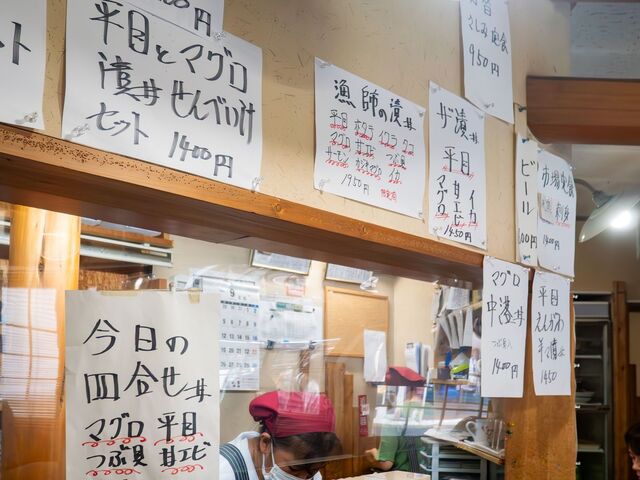 ット
00円
平目とマグロ
漬丼せんべい汁
セット 1400円
漁師の漬丼
平目 ホタテ イクラ タコ
マグロ 甘エビ つぶ貝
サーモン カジキマグロ イカ
1950円
ザ漬丼
平目
イカ
甘エビ
マグロ
1450円
さしみ定食
950円
ビール
市場定食
刺身
1400円
マグロ
中漬丼
つぶ貝入
1400円
平目
えんがわ
漬丼
1450
今日の
四合せ丼
マグロ 平目
つぶ貝 甘エビ